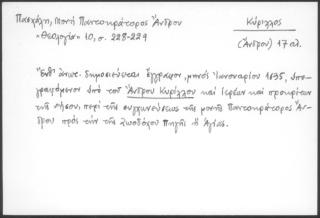 Πασχάλη, Μονή Παντοκράτορος Ἄνδρου
"Θεολογία" 10, σ. 228-229
Κύριλλος
(Ἄνδρου) 17 αἰ.
Ἔνθ' ἀνωτ. δημοσιεύεται ἔγγραφον, μηνός Ἰανουαρίου 1695, ὑπο-
γραφόμενον ὑπό τοῦ Ἄνδρου Κυρίλλου καί ἱερέων καί προκρίτων
τῆς νήσου, περί τῆς συγχωνεύσεως τῆς μονῆς Παντοκράτορος Ἄν-
δρου πρός τήν τῆς Ζωοδόχου Πηγῆς ἤ Ἁγίας.